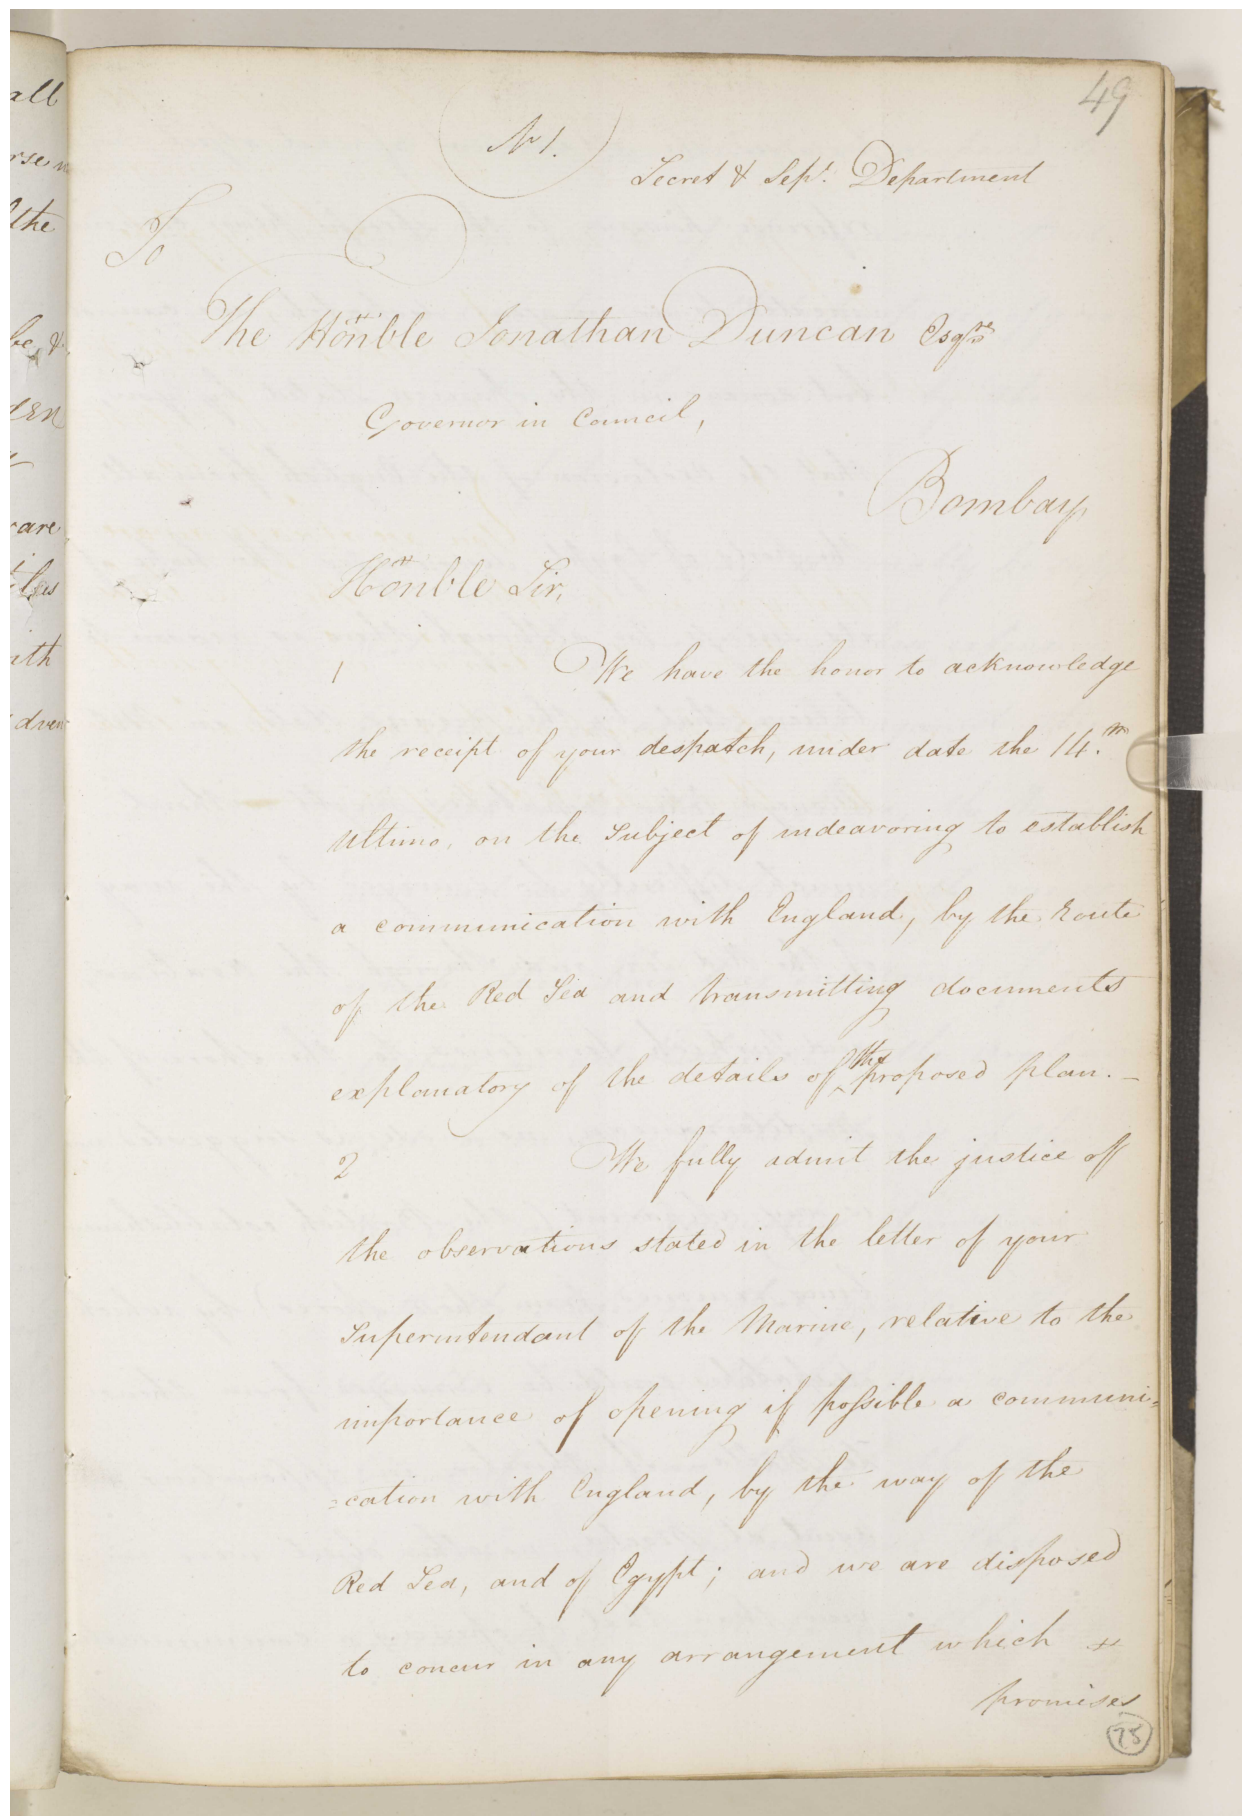 49
No 1.
Secret & Sept. Department
To
The Honble Jonathan Duncan Esqre
Governor in Council,
Bombay
Honble Sir,
1 We have the honor to acknowledge
the receipt of your despatch, under date the 14.th
Ultimo, on the Subject of indeavoring to establish
a communication with England, by the Route
of the Red Sea and transmitting documents
explanatory of the details of the proposed plan. —
2 We fully admit the justice of
the observations stated in the letter of your
Superintendant of the Marine, relative to the
importance of opening if possible a communi=
=cation with England, by the way of the
Red Sea, and of Egypt; and we are disposed
to concur in any arrangement which
promises
75
all
the
be, &
are
ith